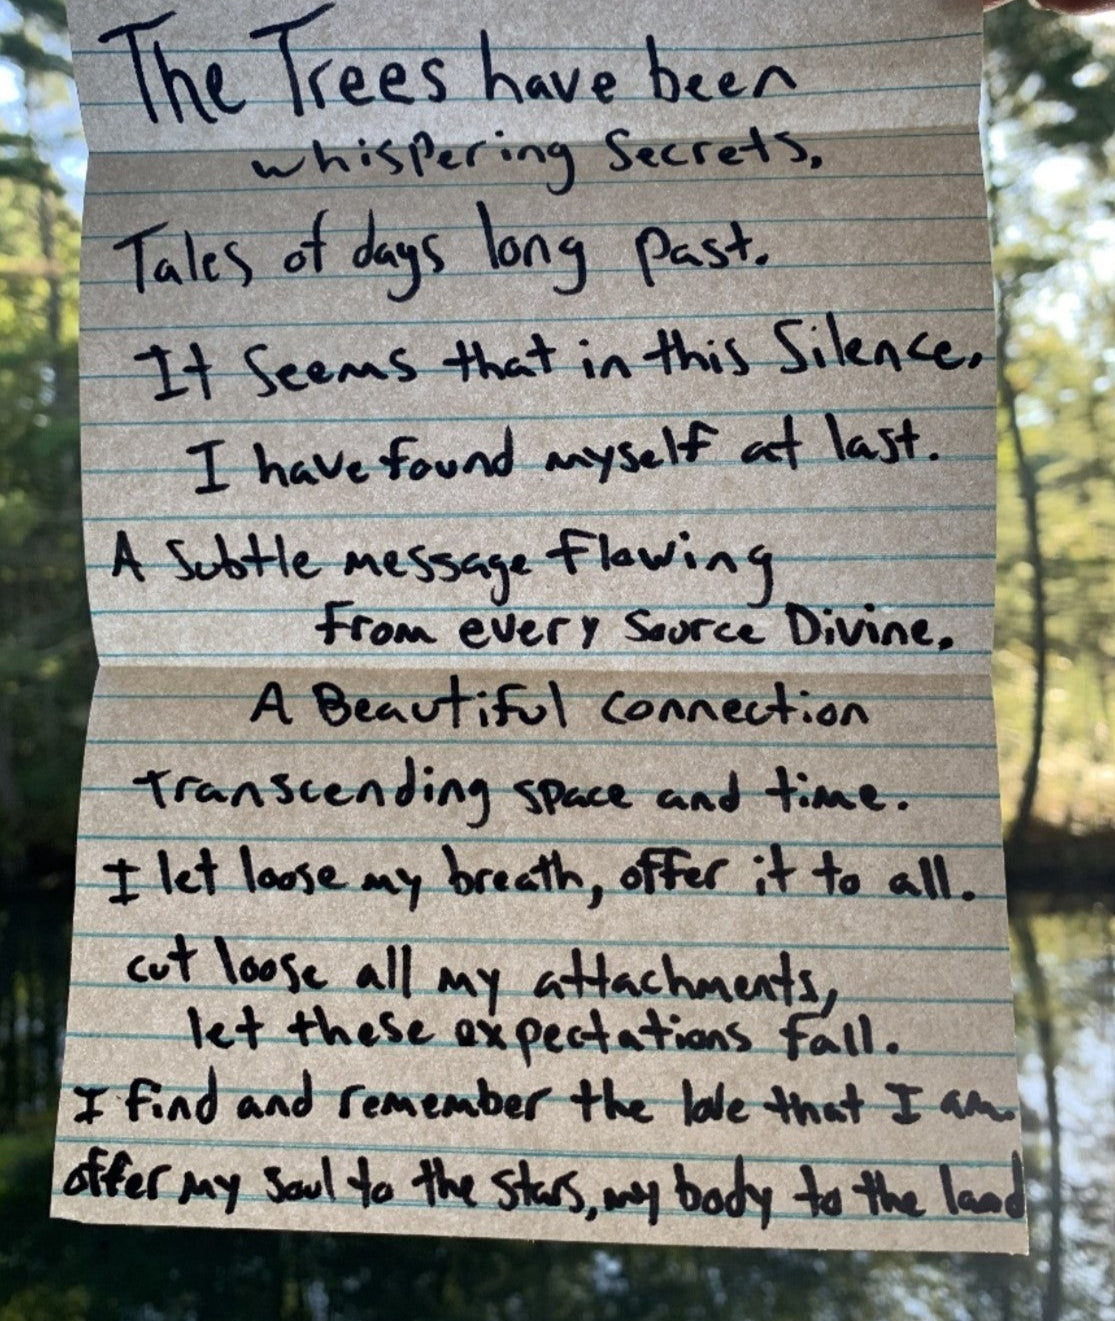 The Trees have been
whispering Secrets.
Tales of days long past.
It Seems that in this Silence.
I have found myself at last.
A Subtle message Flowing
From every Source Divine.
A Beautiful connection
transcending space and time.
I let loose my breath, offer it to all.
cut loose all my attachments,
let these expectations fall.
I find and remember the love that I am.
offer my soul to the stars, my body to the land